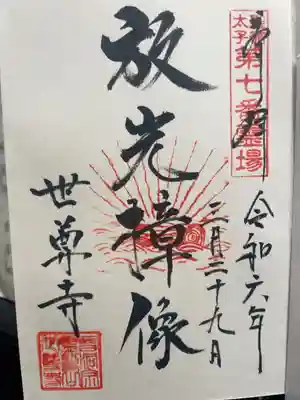 奉拝
太子
第七番霊場
令和六年
二月二十九日
放光樟像
世尊寺